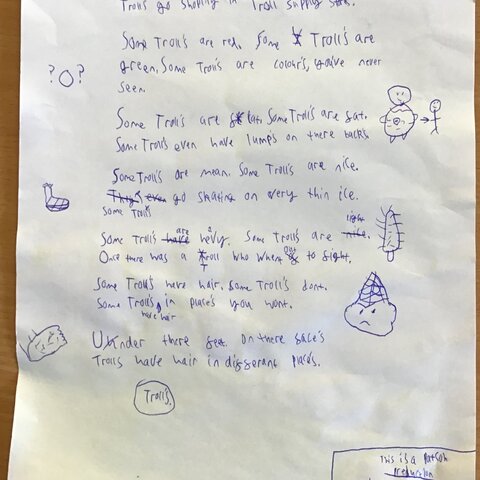 Troll's go shoping in Troll supply
Some Troll's are red. Some Troll's are
green. Some Troll's are colour's, you've never
seen.
? O ?
Some Troll's are fat. Some Troll's are fat.
Some Troll's even have lump's on there back's.
Some Troll's are mean. Some Troll's are nice.
Some Troll's go skating on very thin ice.
Some Troll's are hevy. Some Troll's are light
Once there was a Troll who went out to fight.
Some Troll's have hair. Some Troll's dont.
Some Troll's have hair in place's you wont.
Under there feet. On there face's
Trolls have hair in differant place's.
Troll's.
This is a